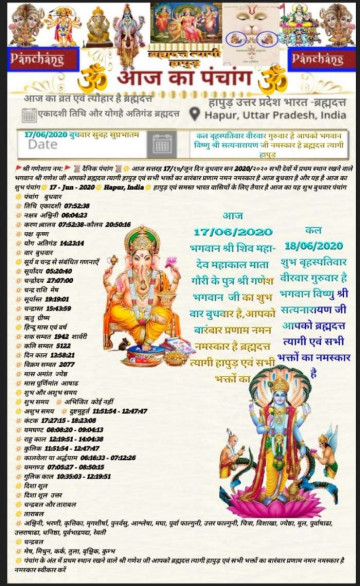 ब्रह्मदत्त त्यागी
हापुड़
Panchang
ॐ आज का पंचांग ॐ
Panchang
आज का व्रत एवं त्यौहार है ब्रह्मदत्त
एकादशी तिथि और योगहै अतिगंड ब्रह्मदत्त
हापुड़ उत्तर प्रदेश भारत -ब्रह्मदत्त
Hapur, Uttar Pradesh, India
17/06/2020 बुधवार सुबह सुप्रभातम
Date
कल बृहस्पतिवार वीरवार गुरुवार है आपको भगवान
विष्णु श्री सत्यनारायण जी नमस्कार है ब्रह्मदत्त त्यागी
हापुड़
श्री गणेशाय नम: दैनिक पंचांग
शुभ पंचांग 17 - Jun - 2020 Hapur, India हापुड़ एवं समस्त भारत वासियों के लिए तैयार है आज का यह शुभ बुधवार पंचांग
पंचांग बुधवार
तिथि एकादशी 07:52:38
नक्षत्र अश्विनी 06:04:23
करण बालव 07:52:38-कौलव 20:50:16
पक्ष कृष्ण
योग अतिगंड 14:23:14
वार बुधवार
सूर्य व चन्द्र से संबंधित गणनाएँ
सूर्योदय 05:20:40
चन्द्रोदय 27:07:00
चन्द्र राशि मेष
सूर्यास्त 19:19:01
चन्द्रास्त 15:43:59
ऋतु ग्रीष्म
हिन्दू मास एवं वर्ष
शक सम्वत 1942 शार्वरी
कलि सम्वत 5122
दिन काल 13:58:21
विक्रम सम्वत 2077
मास अमांत ज्येष्ठ
मास पूर्णिमांत आषाढ
शुभ और अशुभ समय
शुभ समय अभिजित कोई नहीं
अशुभ समय दुष्टमुहूर्त 11:51:54 - 12:47:47
कंटक 17:27:15 - 18:23:08
यमघण्ट 08:08:20 - 09:04:13
राहु काल 12:19:51 - 14:04:38
कुलिक 11:51:54 - 12:47:47
कालवेला या अर्द्धयाम 06:16:33 - 07:12:26
यमगण्ड 07:05:27 - 08:50:15
गुलिक काल 10:35:03 - 12:19:51
दिशा शूल
दिशा शूल उत्तर
चन्द्रबल और ताराबल
ताराबल
अश्विनी, भरणी, कृत्तिका, मृगशीर्षा, पुनर्वसु, आश्लेषा, मघा, पूर्वा फाल्गुनी, उत्तर फाल्गुनी, चित्रा, विशाखा, ज्येष्ठा, मूल, पूर्वाषाढा,
उत्तराषाढा, धनिष्ठा, पूर्वभाद्रपदा, रेवती
चन्द्रबल
मेष, मिथुन, कर्क, तुला, वृश्चिक, कुम्भ
पंचांग के अंत में प्रथम स्थान रखने वाले श्री गणेश जी आपको ब्रह्मदत्त त्यागी हापुड़ एवं सभी भक्तों का बारंबार प्रणाम नमन नमस्कार है
नमस्कार स्वीकार करें
आज
17/06/2020
भगवान श्री शिव महा-
देव महाकाल माता
गोरी के पुत्र श्री गणेश
भगवान जी का शुभ
वार बुधवार है, आपको
बारंबार प्रणाम नमन
नमस्कार है ब्रह्मदत्त
त्यागी हापुड़ एवं सभी
भक्तों का
कल
18/06/2020
शुभ बृहस्पतिवार
वीरवार गुरुवार है
भगवान विष्णु श्री
सत्यनारायण जी
आपको ब्रह्मदत्त
त्यागी एवं सभी
भक्तों का नमस्कार
है